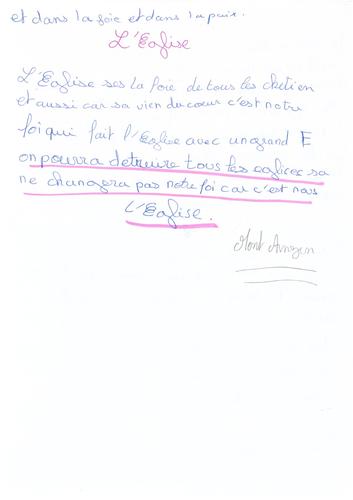 et dans la joie et dans la paix.
L'Eglise
L'Eglise ses la foie de tous les chetien
et aussi car sa vien du cœur c'est notre
foi qui fait l'Eglise avec un grand E
on pourra detruire tous les eglices sa
ne changera pas notre foi car c'est nous
L'Eglise.
Mont